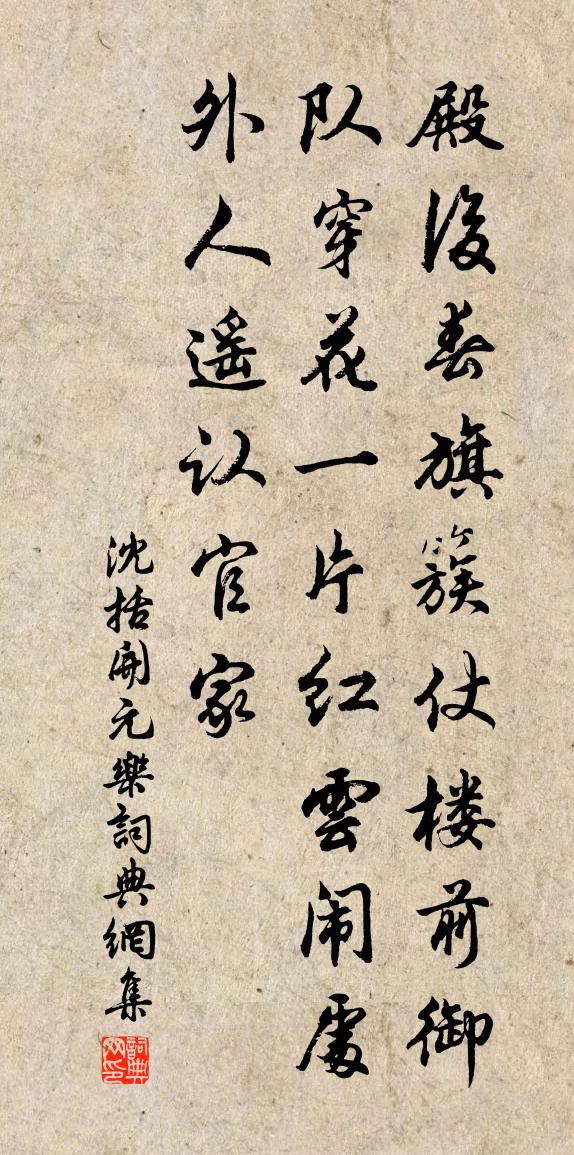 殿後春旗簇仗楼前御
队穿花一片红雲闹處
外人遥认官家
沈括開元樂詞典網集
詞典网印